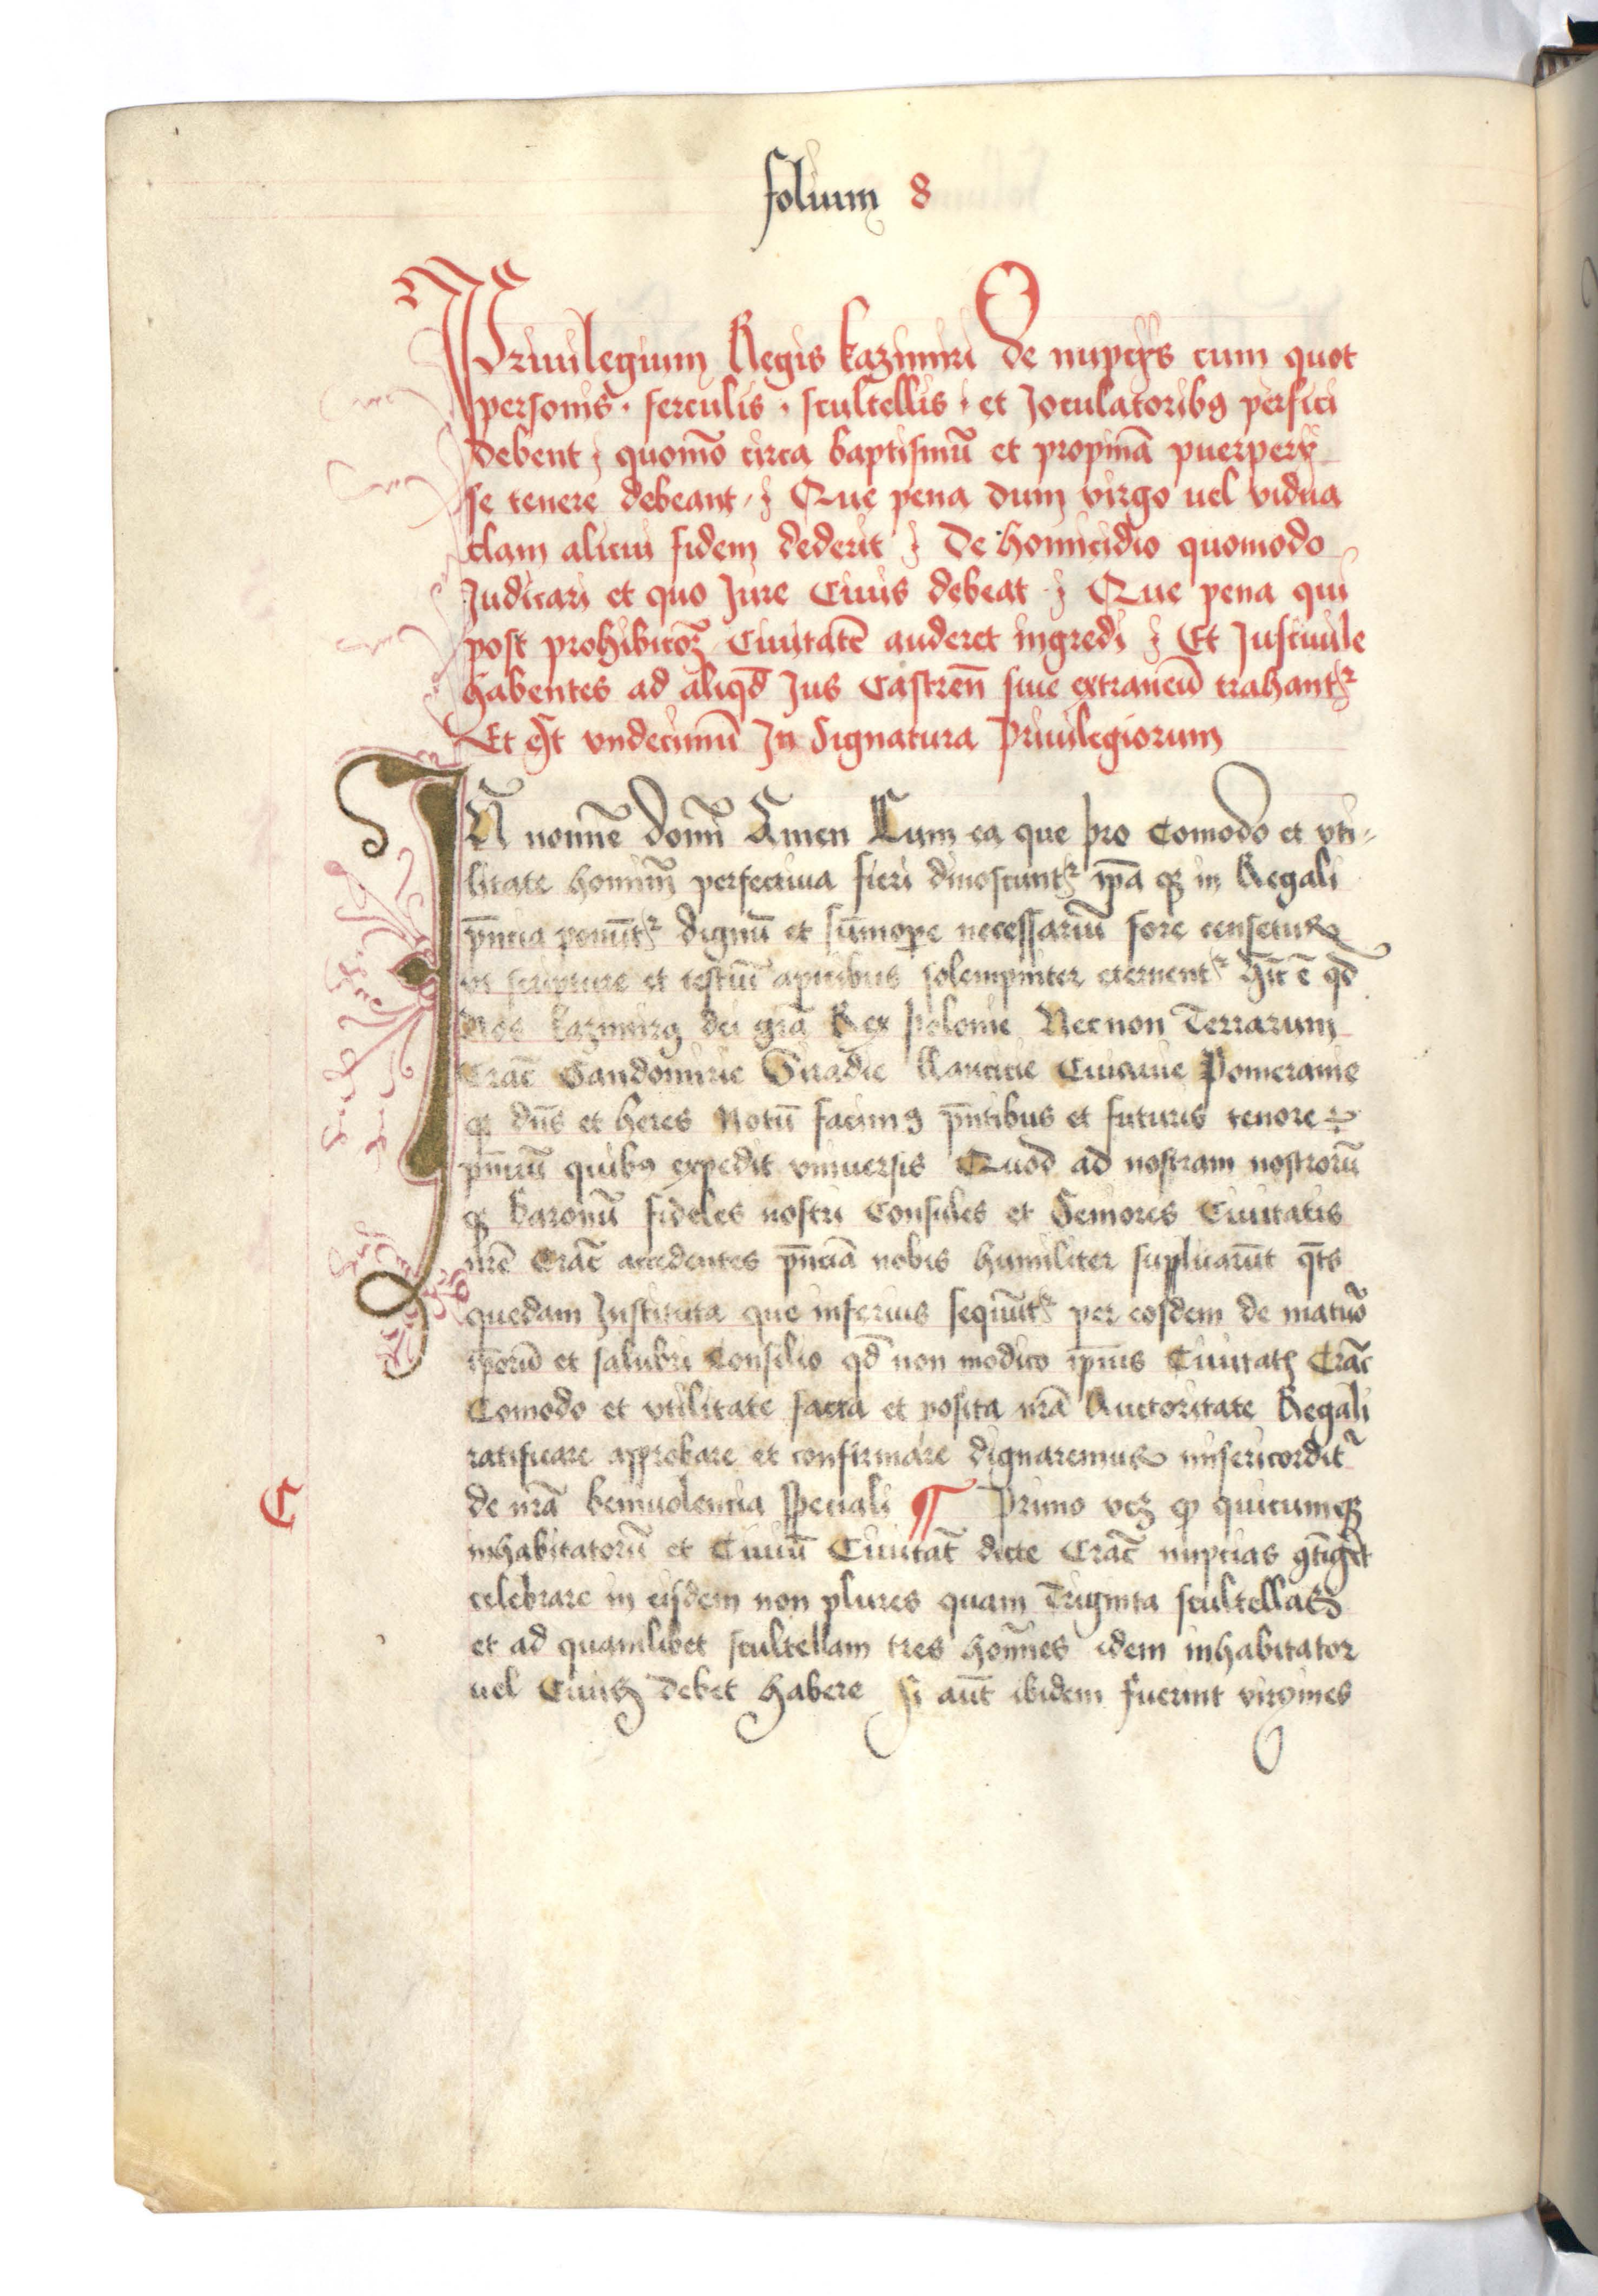 folium 8
Priuilegium Regis kazimiri De nupcÿs cum quot
personis . ferculis . scultellis . et Joculatoribꝯ perfici
debent ; quomō circa baptismū et propinā puerperÿ
se tenere debeant ; Que pena dum virgo uel vidua
clam alicui fidem dederit ; De homicidio quomodo
Judicari et quo Jure Ciuis debeat ; Que pena qui
post prohibicōꝫ Ciuitatē auderet ingredi ; Et Jusciuile
habentes ad aliqd̄ Jus Castren̄ siue extraneū trahantᷣ
Et est vndecimū In Signatura Priuilegiorum
IN nomīe Domī Amen Cum ea que pro Comodo et vti-
litate hominū perfectiua fieri dinoscuntᷣ ip̄a qꝫ in Regali
pn̄cia ponūtᷣ dignū et sūmope necessariū fore censetur
vt scripture et testiū apicibus solempniter eternentᷣ hīc ē qd̄
Nos kazimirꝯ dei grā Rex polonie Necnon Terrarum
Crac̄ Sandomirie Siradie Lancicie Cuiauie Pomeranie
qꝫ dn̄s et heres Notū facimꝯ pn̄tibus et futuris tenore
pn̄ciū quibꝯ expedit vniuersis Quod ad nostram nostrorū
qꝫ baronū fideles nostri Consules et Seniores Ciuitatis
nr̄e Crac̄ accedentes pn̄ciā nobis humiliter suplicarūt qt̄s
quedam Instituta que inferius sequūtᷣ per eosdem de maturo
ip̄orū et salubri Consilio qd̄ non modico ip̄ius Ciuitatꝭ Crac̄
Comodo et vtilitate facta et posita nr̄a Auctoritate Regali
ratificare approbare et confirmare dignaremur misericordit̄
de nr̄a beniuolencia speciali ¶ Primo veꝫ ꝙ quicumqꝫ
C
inhabitatorū et Ciuiū Ciuitat̄ dicte Crac̄ nupcias ꝯtiḡet
celebrare in eisdem non plures quam Triginta scultellas
et ad quamlibet scultellam tres homīes idem inhabitator
uel Ciuis debet habere si aūt ibidem fuerint virgines